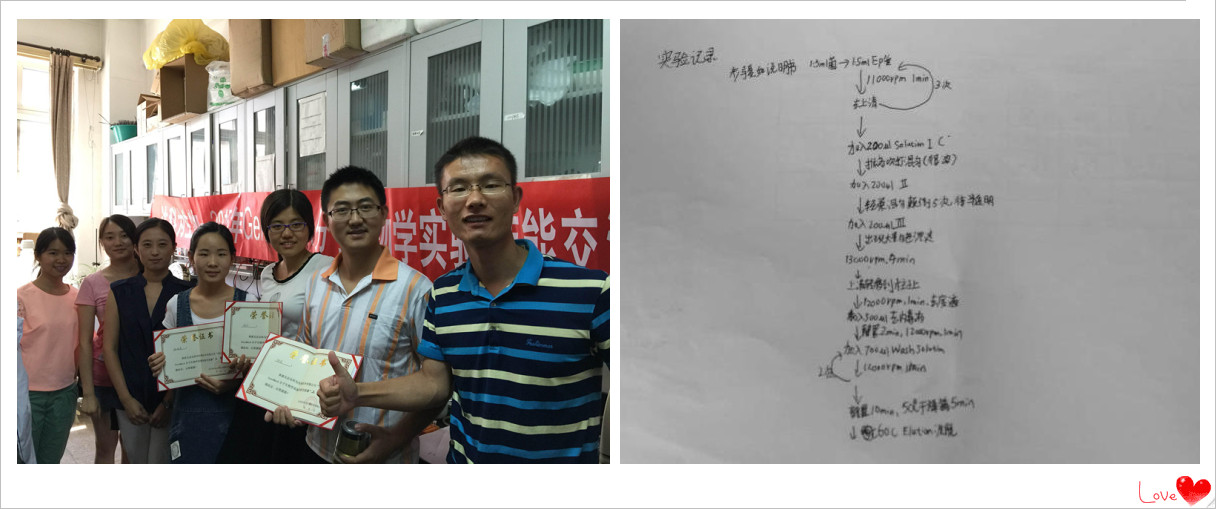 学实验技能交
荣誉证书
荣誉证书
实验记录
步骤如说明书 1.5ml菌→1.5ml EP管
↓11000rpm 1min
3次
去上清
↓
加入200ul Solution I
加入200ul II
加入200ul III
↓出现大量白色沉淀
13000rpm, 4min
上清转移到柱上
↓12000rpm, 1min, 去废液
加入500ul去内毒
↓静置2min, 12000rpm, 1min
加入700ul Wash Solution
2次
↓12000rpm 1min
静置10min, 50℃干燥箱5min
60℃ Elution 洗脱
Love